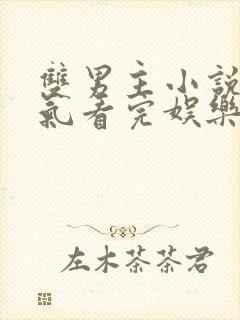 雙男主小說
氣看完娛樂
左木茶茶君